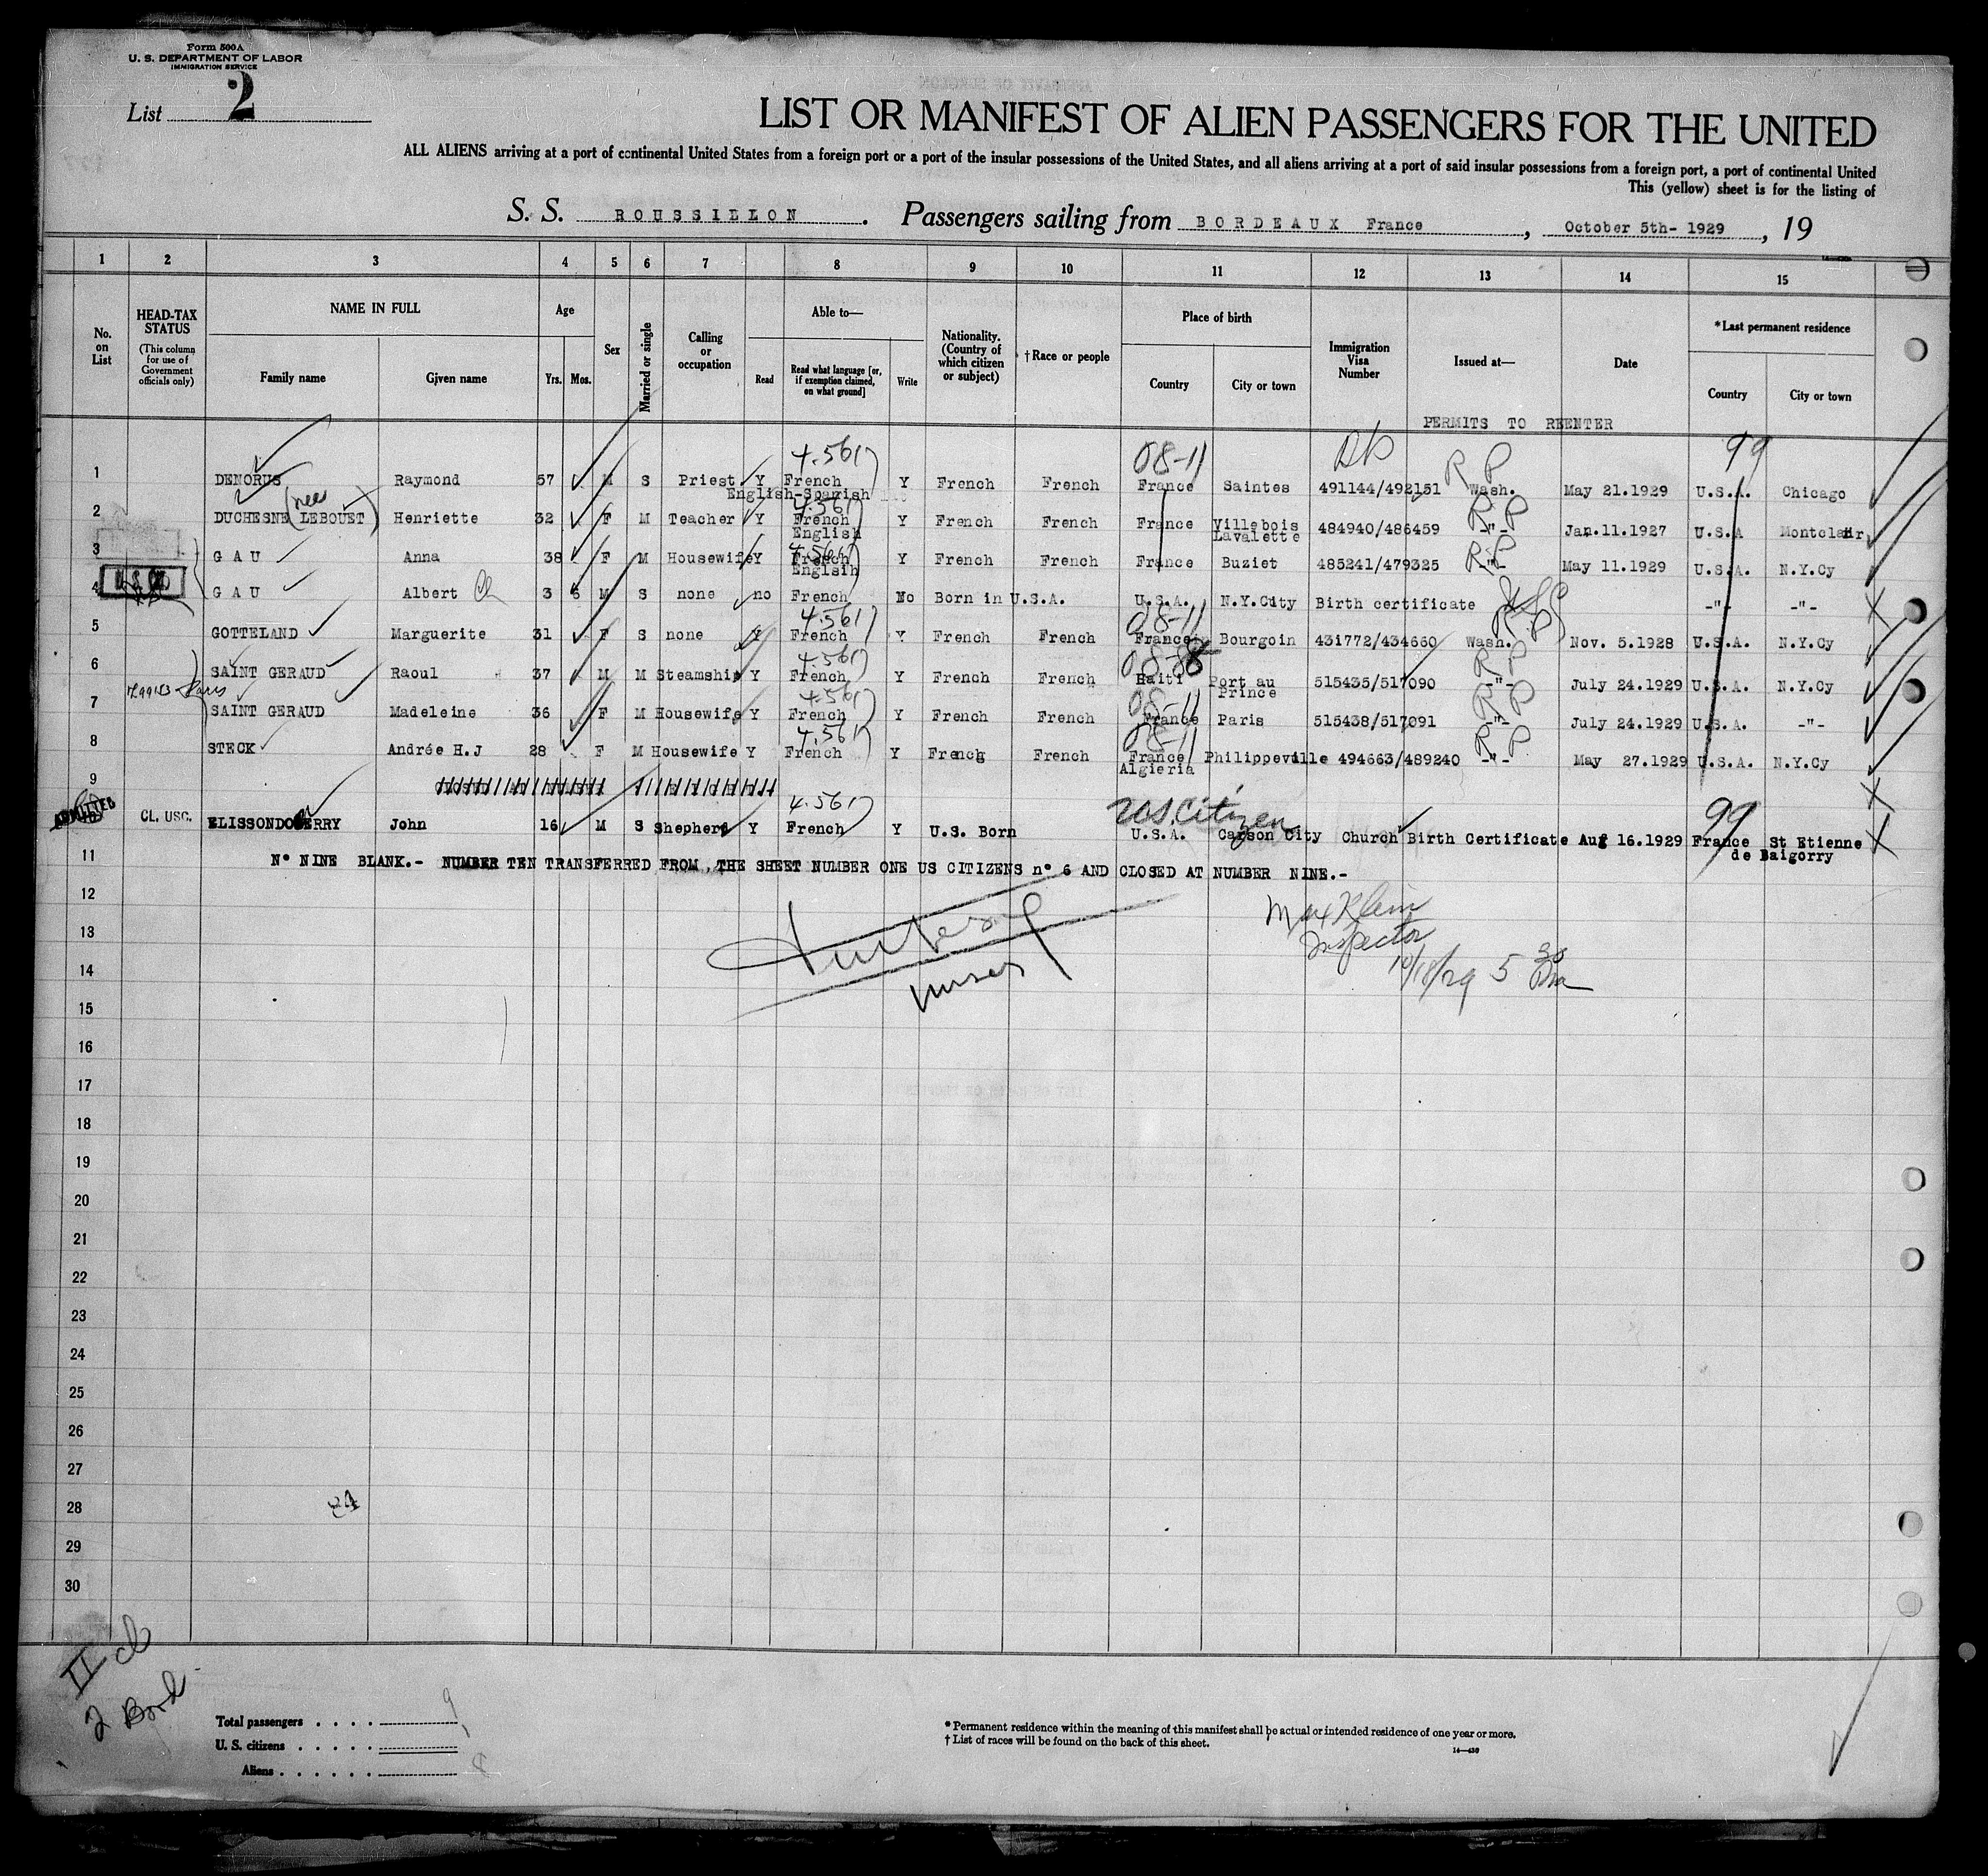 Form 500A
U. S. DEPARTMENT OF LABOR
IMMIGRATION SERVICE
List 2
LIST OR MANIFEST OF ALIEN PASSENGERS FOR THE UNITED
ALL ALIENS arriving at a port of continental United States from a foreign port or a port of the insular possessions of the United States, and all aliens arriving at a port of said insular possessions from a foreign port, a port of continental United
This (yellow) sheet is for the listing of
S. S. ROUSSILLON. Passengers sailing from BORDEAUX France, October 5th- 1929, 19
1 2 3 4 5 6 7 8 9 10 11 12 13 14 15
No. on List
HEAD-TAX STATUS (This column for use of Government officials only)
NAME IN FULL Family name Given name
Age Yrs. Mos.
Sex
Married or single
Calling or occupation
Able to— Read Read what language [or, if exemption claimed, on what ground] Write
Nationality. (Country of which citizen or subject)
†Race or people
Place of birth Country City or town
Immigration Visa Number
Issued at—
Date
*Last permanent residence Country City or town
PERMITS TO REENTER
4.561 08-11 RP 99
1 DENORUS Raymond 57 M S Priest Y French Y French French France Saintes 491144/492151 Wash. May 21.1929 U.S.A. Chicago
English-Spanish
(nee 4.561 RP
2 DUCHESNE LEBOUET) Henriette 32 F M Teacher Y French Y French French France Villebois 484940/486459 -"- Jan.11.1927 U.S.A Montclair
English Lavalette
4.561 RP
3 GAU Anna 38 F M Housewife Y French Y French French France Buziet 485241/479325 -"- May 11.1929 U.S.A. N.Y.Cy
Englsih
4 GAU Albert Ch 3 6 M S none no French No Born in U.S.A. U.S.A. N.Y.City Birth certificate -"- -"-
4.561 08-11 RP
5 GOTTELAND Marguerite 31 F S none Y French Y French French France Bourgoin 431772/434660 Wash. Nov. 5.1928 U.S.A. N.Y.Cy
4.561 08-88 RP
6 SAINT GERAUD Raoul 37 M M Steamship Y French Y French French Haiti Port au 515435/517090 -"- July 24.1929 U.S.A. N.Y.Cy
Prince
Paris 4.561 08-11 RP
7 SAINT GERAUD Madeleine 36 F M Housewife Y French Y French French France Paris 515438/517091 -"- July 24.1929 U.S.A. -"-
4.561 08-11 RP
8 STECK Andrée H.J 28 F M Housewife Y French Y French French France Philippeville 494663/489240 -"- May 27.1929 U.S.A. N.Y.Cy
Algieria
9
4.561 US. Citizen 99
ADMITTED CL. USC. ELISSONDOBERRY John 16 M S Shepherd Y French Y U.S. Born U.S.A. Carson City Church Birth Certificate Aug 16.1929 France St Etienne
de Baigorry
11 N° NINE BLANK.- NUMBER TEN TRANSFERRED FROM, THE SHEET NUMBER ONE US CITIZENS n° 6 AND CLOSED AT NUMBER NINE.-
12
Max Klein
13
Inspector
14
10/18/29 5 30 Pm
15
16
17
18
19
20
21
22
23
24
25
26
27
28
29
30
II cl
2 Bord
Total passengers . . . . 9
U. S. citizens . . . . . 1
Aliens . . . . . . 8
* Permanent residence within the meaning of this manifest shall be actual or intended residence of one year or more.
† List of races will be found on the back of this sheet.
14—430